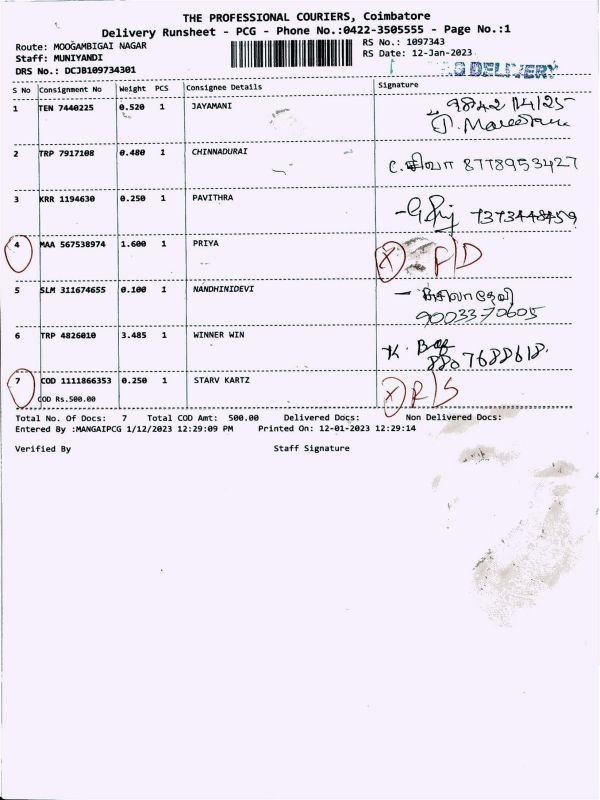 THE PROFESSIONAL COURIERS, Coimbatore
Delivery Runsheet - PCG - Phone No.:0422-3505555 - Page No.:1
Route: MOOGAMBIGAI NAGAR
RS No.: 1097343
Staff: MUNIYANDI
RS Date: 12-Jan-2023
DRS No.: DCJB109734301
DELIVERY
S No Consignment No Weight PCS Consignee Details Signature
1 TEN 7440225 0.520 1 JAYAMANI
2 TRP 7917108 0.480 1 CHINNADURAI C. சிவா 8778953427
3 KRR 1194630 0.250 1 PAVITHRA
4 MAA 567538974 1.600 1 PRIYA X P/D
5 SLM 311674655 0.100 1 NANDHINIDEVI
9003370605
6 TRP 4826010 3.485 1 WINNER WIN K.
8807688618.
7 COD 1111866353 0.250 1 STARV KARTZ X R/S
COD Rs.500.00
Total No. Of Docs: 7 Total COD Amt: 500.00 Delivered Docs: Non Delivered Docs:
Entered By :MANGAIPCG 1/12/2023 12:29:09 PM Printed On: 12-01-2023 12:29:14
Verified By Staff Signature